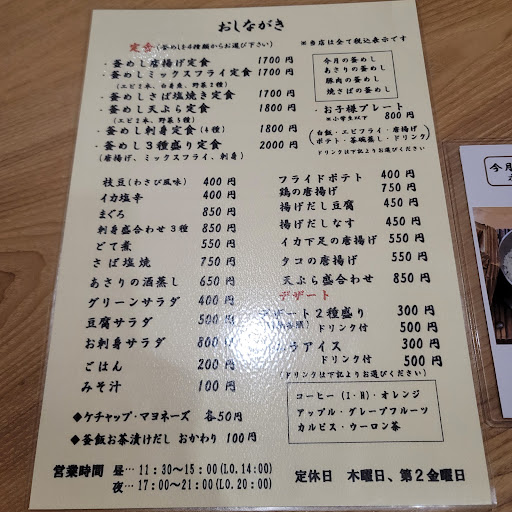 おしながき
定食 (釜めしを4種類からお選び下さい)
※当店は全て税込表示です
・釜めし唐揚げ定食 1700円
・釜めしミックスフライ定食 1700円
(エビ2本、白身魚、野菜2種)
・釜めしさば塩焼き定食 1700円
・釜めし天ぷら定食 1800円
(エビ2本、野菜5種)
・釜めし刺身定食(4種) 1800円
・釜めし3種盛り定食 2000円
(唐揚げ、ミックスフライ、刺身)
今月の釜めし
あさりの釜めし
豚肉の釜めし
焼さばの釜めし
・お子様プレート
※小学生以下 800円
(白飯・エビフライ・唐揚げ
ポテト・茶碗蒸し・ドリンク)
ドリンクは下記よりお選びください
枝豆(わさび風味) 400円
イカ塩辛 400円
まぐろ 850円
刺身盛合わせ3種 850円
どて煮 550円
さば塩焼 750円
あさりの酒蒸し 650円
グリーンサラダ 400円
豆腐サラダ 500円
お刺身サラダ 800円
ごはん 200円
みそ汁 100円
フライドポテト 400円
鶏の唐揚げ 750円
揚げだし豆腐 450円
揚げだしなす 450円
イカ下足の唐揚げ 550円
タコの唐揚げ 550円
天ぷら盛合わせ 850円
デザート
デザート2種盛り 300円
ドリンク付 500円
ラアイス 300円
ドリンク付 500円
(ドリンクは下記よりお選びください)
コーヒー(I・H)・オレンジ
アップル・グレープフルーツ
カルピス・ウーロン茶
◆ケチャップ・マヨネーズ 各50円
◆釜飯お茶漬けだし おかわり 100円
営業時間 昼…11:30~15:00(LO.14:00)
夜…17:00~21:00(LO.20:00)
定休日 木曜日、第2金曜日
今月